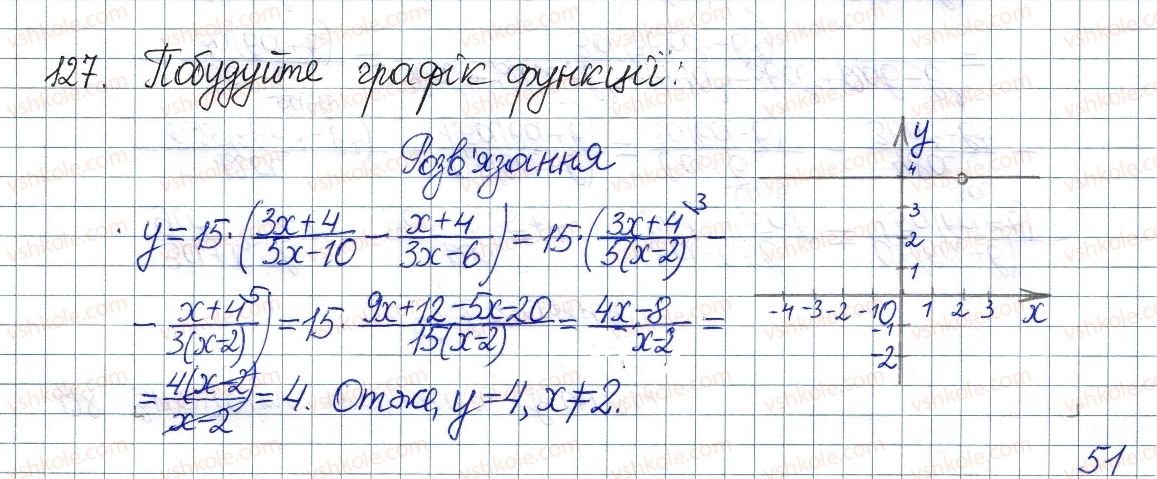 127. Побудуйте графік функції:
Розв'язання
y = 15·((3x+4)/(5x-10) - (x+4)/(3x-6)) = 15·((3x+4)/(5(x-2)) \3 -
- (x+4)/(3(x-2)) \5) = 15· (9x+12-5x-20)/(15(x-2)) = (4x-8)/(x-2) =
= (4(x-2))/(x-2) = 4. Отже, y=4, x≠2.
y
4
3
2
1
-4 -3 -2 -1 0 1 2 3 x
-1
-2
51
vshkole.com